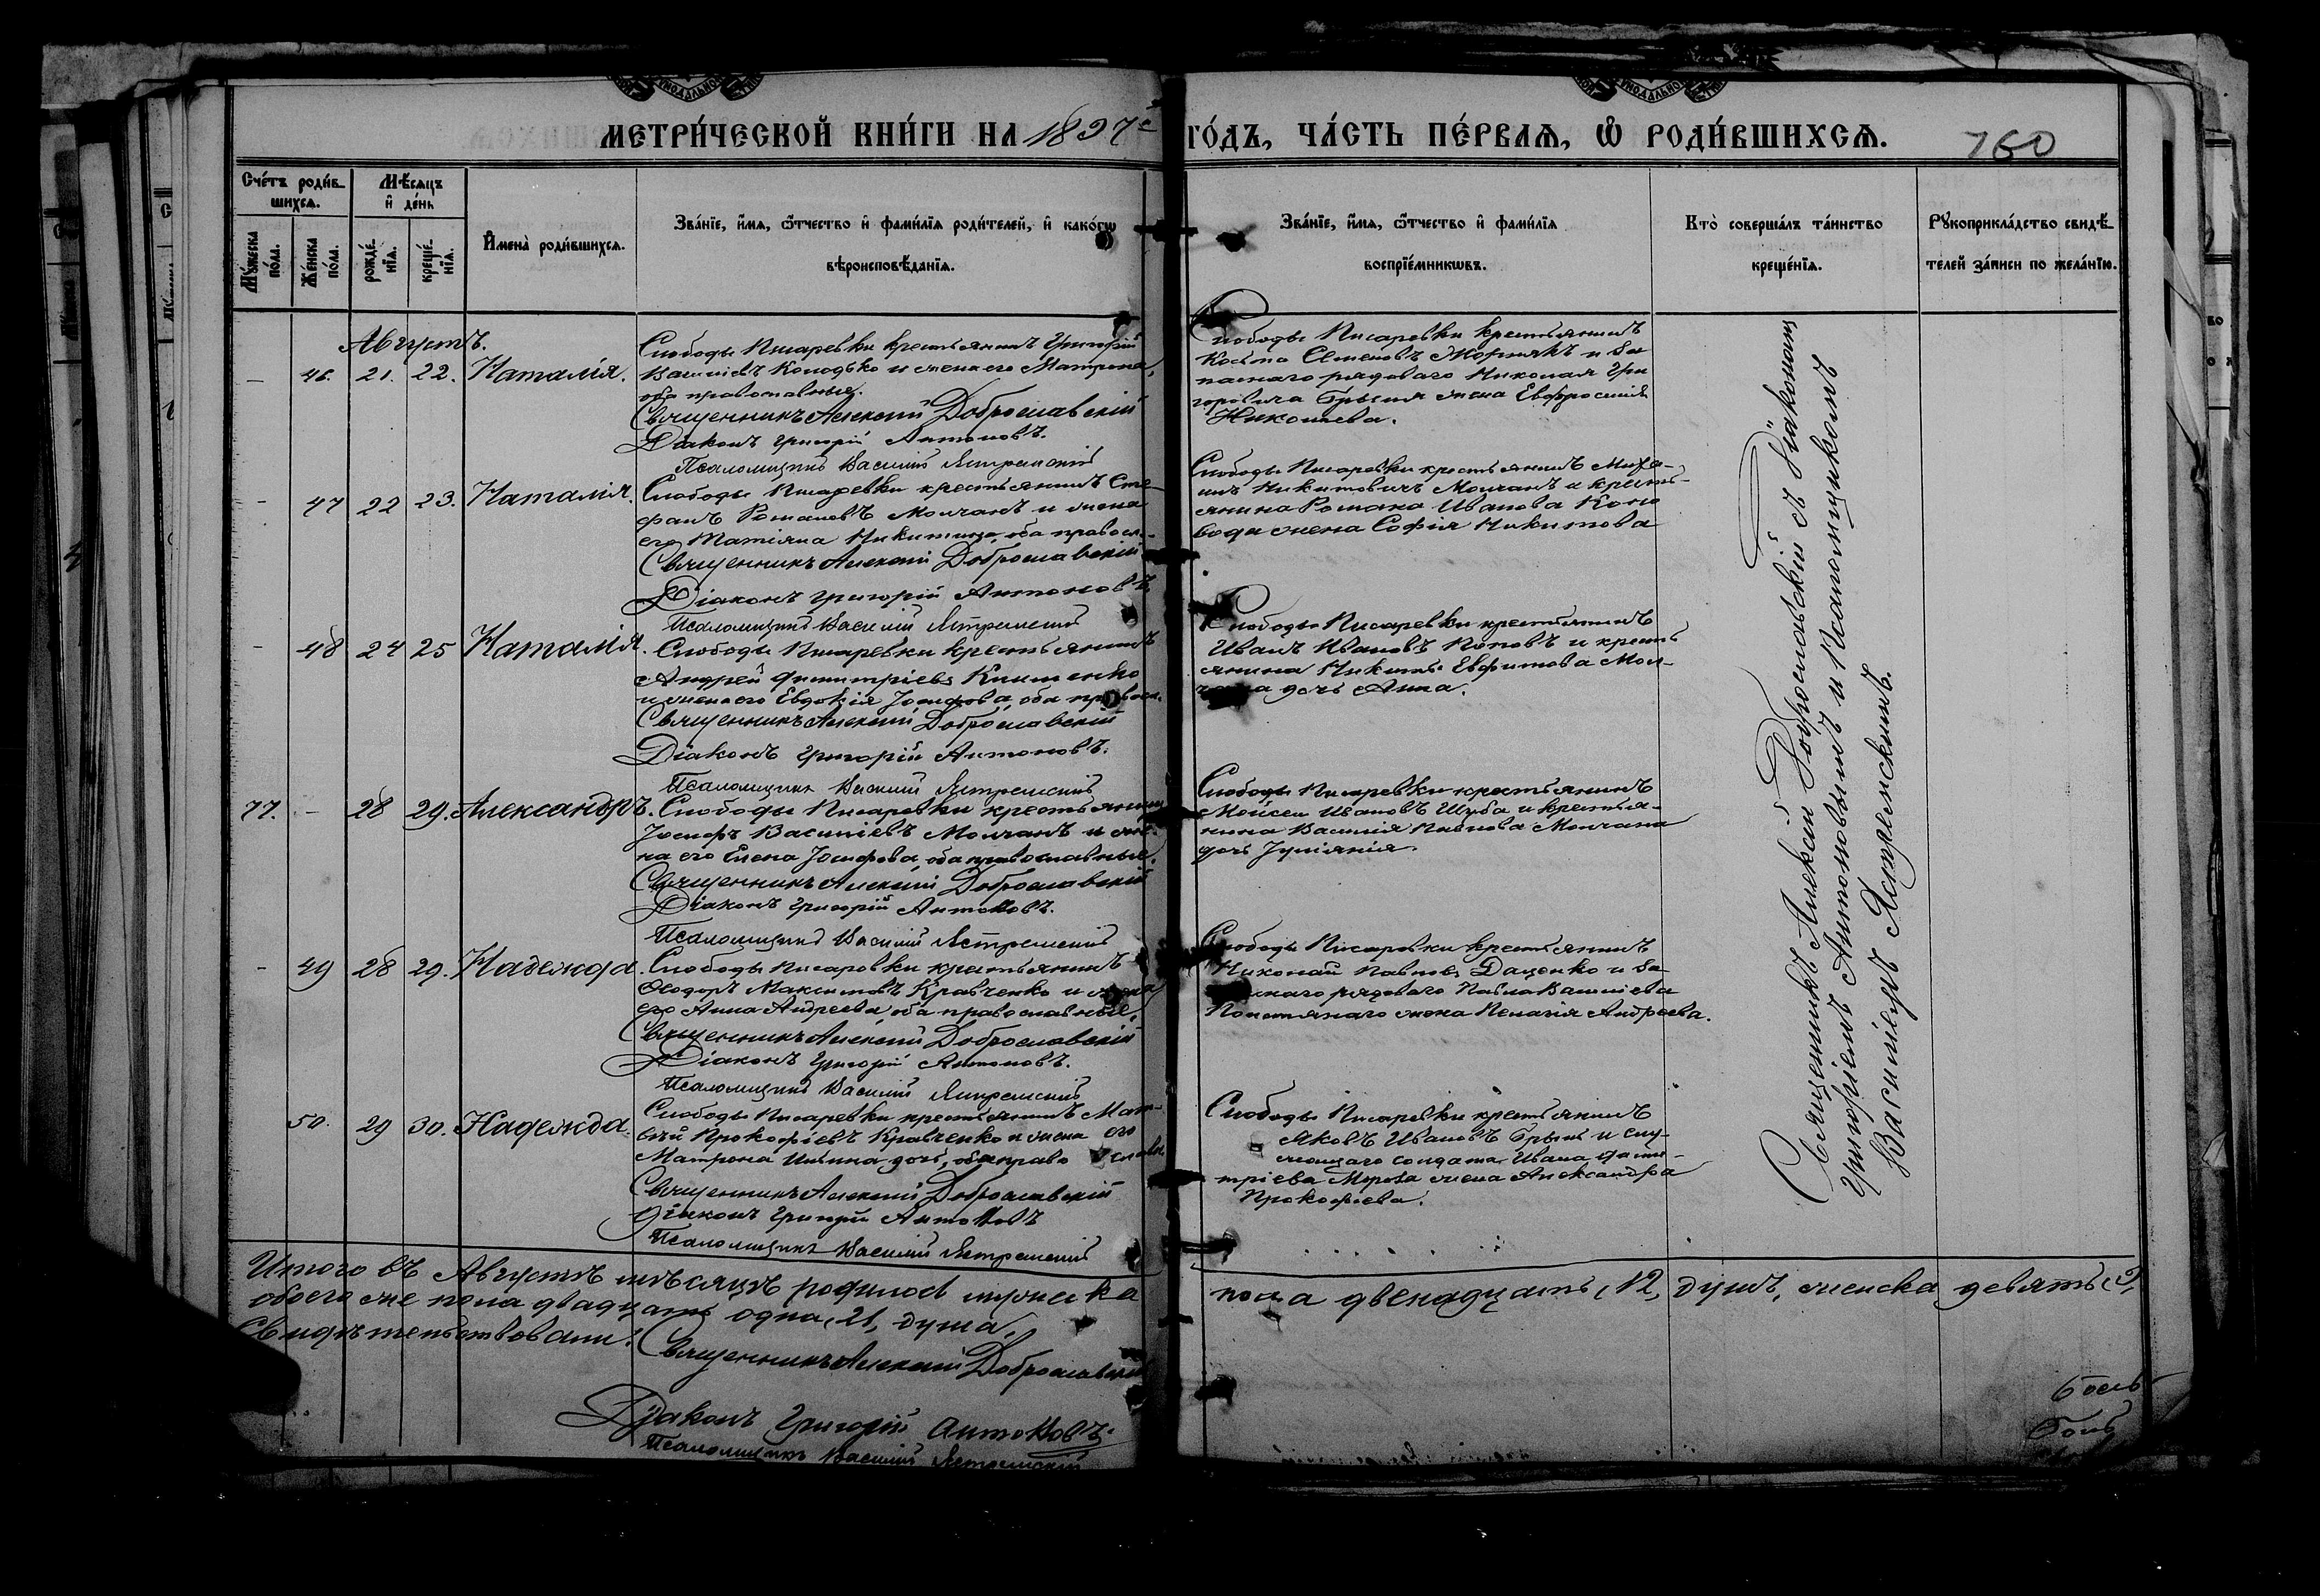 МЕТРИ́ЧЕСКОЙ КНИ́ГИ НА 1897 ГО́ДЪ, ЧА́СТЬ ПЕ́РВАѦ, Ѽ РОДИ́ВШИХСѦ. 760
Сче́тъ роди́вшихсѧ.
Мѣ́сяцъ и҆ де́нь
Мꙋ́жеска по́ла.
Же́нска по́ла.
рожде́нїѧ.
креще́нїѧ.
И҆мена̀ роди́вшихсѧ.
Зва́нїе, и҆́мѧ, ѻ҆́тчество и҆ фами́лїѧ роди́телей, и҆ како́гѡ
вѣроисповѣ́данїѧ.
Зва́нїе, и҆́мѧ, ѻ҆́тчество и҆ фами́лїѧ
воспрїе́мникѡвъ.
Кто̀ соверша́лъ та́инство
креще́нїѧ.
Рꙋкоприкла́дство свидѣ́телей за́писи по жела́нїю.
Августъ.
46. 21. 22. Наталія.
Слободы Писаревки крестьянинъ Григорій
Василіевъ Колодько и жена его Матрона,
оба православные.
Священникъ Алексій Доброславскій
Діаконъ Григорій Антоновъ.
Псаломщикъ Василій Ястремскій
Слободы Писаревки крестьянинъ
Косма Семеновъ и за
паснаго рядоваго Николая Гри
горовича жена Евфросинія
Николаева.
47 22 23. Наталія.
Слободы Писаревки крестьянинъ Сте-
фанъ Романовъ Молчанъ и жена
его Татіана Никитина, оба правосл.
Священникъ Алексій Доброславскій
Діаконъ Григорій Антоновъ
Псаломщикъ Василій Ястремскій
Слободы Писаревки крестьянинъ Миха-
илъ Никитовичъ Молчанъ и кресть-
янина Романа Иванова Коно
вода жена Софія Никитова
48 24 25 Наталія.
Слободы Писаревки крестьянинъ
Андрей Димитріевъ Клименко
и жена его Евдокія Іосифова, оба правосл.
Священникъ Алексій Доброславскій
Діаконъ Григорій Антоновъ.
Псаломщикъ Василій Ястремскій
Слободы Писаревки крестьянинъ
Иванъ Ивановъ Поповъ и кресть
янина Никиты Евфимова Мол-
чана дочь Анна.
77. 28 29. Александръ.
Слободы Писаревки крестьянинъ
Іосифъ Василіевъ Молчанъ и же-
на его Елена Іосифова, оба православные.
Священникъ Алексій Доброславскій
Діаконъ Григорій Антоновъ.
Псаломщикъ Василій Ястремскій
Слободы Писаревки крестьянинъ
Моисей Ивановъ Шуба и крестья-
нина Василія Павлова Молчана
дочь Іуліанія.
49 28 29. Надежда.
Слободы Писаревки крестьянинъ
Ѳеодоръ Максимовъ Кравченко и жена
его Анна Андреева, оба православные.
Священникъ Алексій Доброславскій
Діаконъ Григорій Антоновъ.
Псаломщикъ Василій Ястремскій
Слободы Писаревки крестьянинъ
Николай Павловъ Даценко и за-
паснаго рядоваго Павла Василіева
жена Пелагія Андреева.
50. 29 30. Надежда.
Слободы Писаревки крестьянинъ Мат-
вѣй Прокофіевъ Кравченко и жена его
Матрона Ильина дочь, оба правосл.
Священникъ Алексій Доброславскій
Діаконъ Григорій Антоновъ
Псаломщикъ Василій Ястремскій
Слободы Писаревки крестьянинъ
Яковъ Ивановъ и слу-
жащаго солдата Ивана Дими-
тріева Мороза жена Александра
Прокофіева.
Священникъ Алексій Доброславскій съ Діакономъ
Григоріемъ Антоновымъ и Псаломщикомъ
Василіемъ Ястремскимъ.
Итого въ Августѣ мѣсяцѣ родилось мужеска пола двенадцать, 12, душъ, женска девять, 9,
обоего же пола двадцать одна, 21, душа.
Свидѣтельствовали: Священникъ Алексій Доброславскій
Діаконъ Григорій Антоновъ.
Псаломщикъ Василій Ястремскій